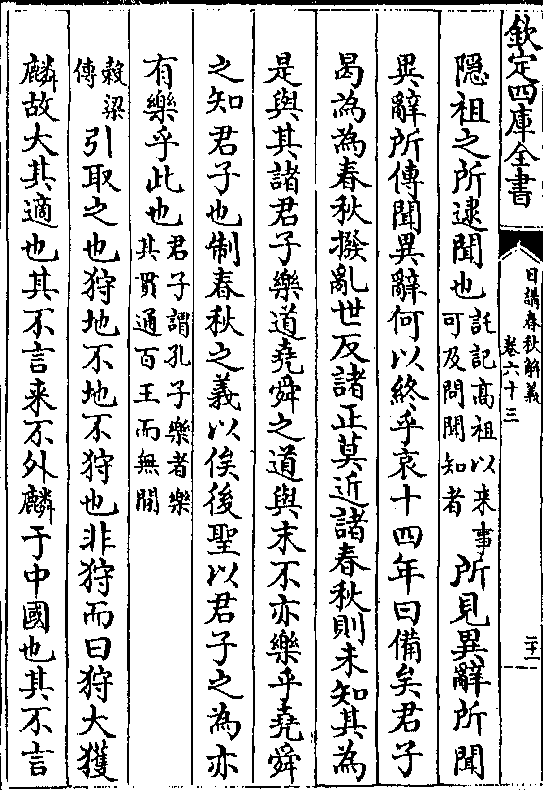 欽定四庫全書
日講春秋解義
卷六十三
二十一
隱祖之所逮聞也
託記高祖以来事
可及問聞知者
所見異辭所聞
異辭所傳聞異辭何以終乎哀十四年曰備矣君子
曷為為春秋撥亂世反諸正莫近諸春秋則未知其為
是與其諸君子樂道堯舜之道與末不亦樂乎堯舜
之知君子也制春秋之義以俟後聖以君子之為亦
有樂乎此也
君子謂孔子樂者樂
其貫通百王而無閒
榖梁
傳
引取之也狩地不地不狩也非狩而曰狩大獲
麟故大其適也其不言来不外麟于中國也其不言